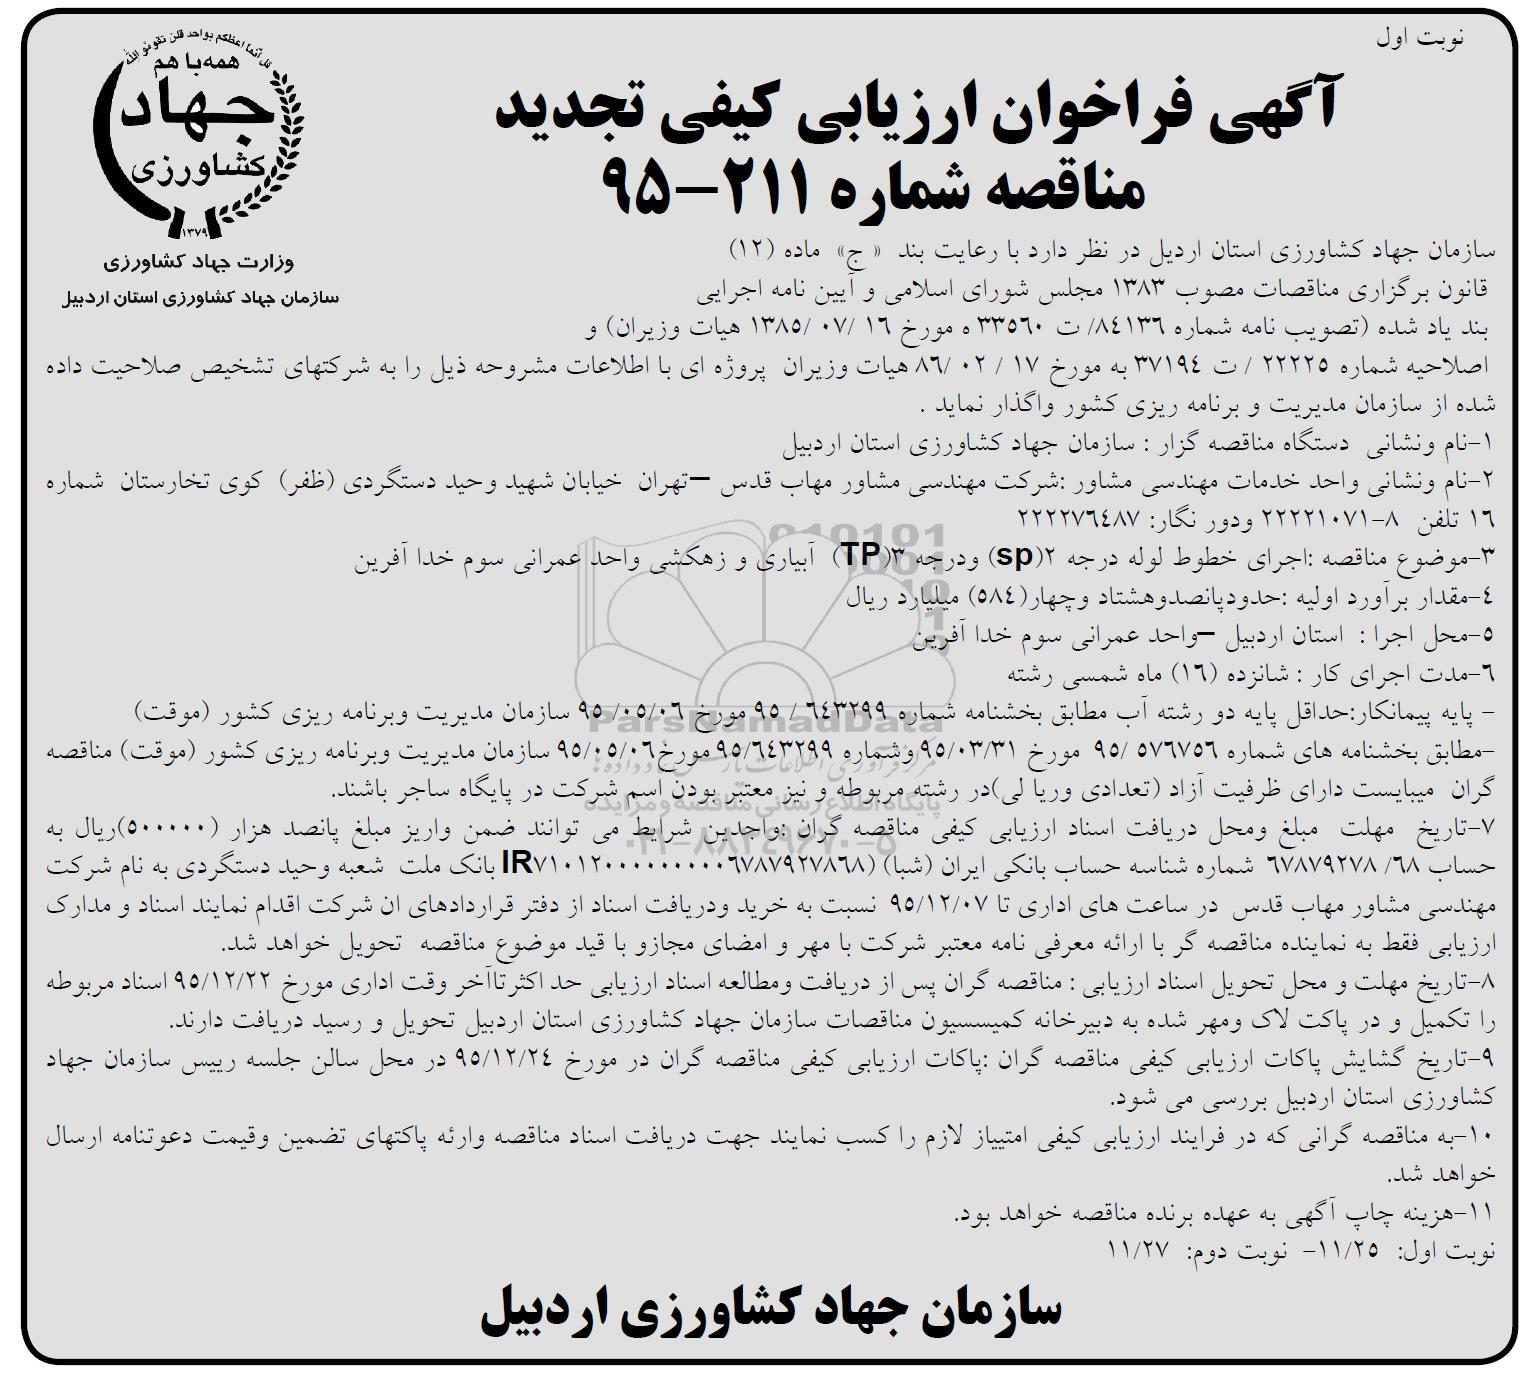 نوبت اول
قل انما اعظکم بواحده ان تقوموا لله
همه با هم
جهاد
کشاورزی
۱۳۷۹
وزارت جهاد کشاورزی
سازمان جهاد کشاورزی استان اردبیل
آگهی فراخوان ارزیابی کیفی تجدید
مناقصه شماره ۲۱۱–۹۵
سازمان جهاد کشاورزی استان اردیل در نظر دارد با رعایت بند « ج» ماده (۱۲)
قانون برگزاری مناقصات مصوب ۱۳۸۳ مجلس شورای اسلامی و آیین نامه اجرایی
بند یاد شده (تصویب نامه شماره ۸٤۱۳٦/ ت ۳۳٥٦۰ ه مورخ ۱٦ /۰۷ /۱۳۸٥ هیات وزیران) و
اصلاحیه شماره ۲۲۲۲٥ / ت ۳۷۱۹٤ به مورخ ۱۷ / ۰۲ /۸٦ هیات وزیران پروژه ای با اطلاعات مشروحه ذیل را به شرکتهای تشخیص صلاحیت داده
شده از سازمان مدیریت و برنامه ریزی کشور واگذار نماید .
۱-نام ونشانی دستگاه مناقصه گزار : سازمان جهاد کشاورزی استان اردبیل
۲-نام ونشانی واحد خدمات مهندسی مشاور :شرکت مهندسی مشاور مهاب قدس –تهران خیابان شهید وحید دستگردی (ظفر) کوی تخارستان شماره
۱٦ تلفن ۸-۲۲۲۲۱۰۷۱ ودور نگار: ۲۲۲۲۷٦٤۸۷
۳-موضوع مناقصه :اجرای خطوط لوله درجه ۲(sp) ودرجه ۳(TP) آبیاری و زهکشی واحد عمرانی سوم خدا آفرین
٤-مقدار برآورد اولیه :حدودپانصدوهشتاد وچهار(٥۸٤) میلیارد ریال
٥-محل اجرا : استان اردبیل –واحد عمرانی سوم خدا آفرین
٦-مدت اجرای کار : شانزده (۱٦) ماه شمسی رشته
- پایه پیمانکار:حداقل پایه دو رشته آب مطابق بخشنامه شماره ٦٤۳۲۹۹ / ۹٥ مورخ ۰٦/۰٥/ ۹٥ سازمان مدیریت وبرنامه ریزی کشور (موقت)
-مطابق بخشنامه های شماره ٥۷٦۷٥٦ /۹٥ مورخ ۹٥/۰۳/۳۱ وشماره ۹٥/٦٤۳۲۹۹ مورخ ۹٥/۰٥/۰٦ سازمان مدیریت وبرنامه ریزی کشور (موقت) مناقصه
گران میبایست دارای ظرفیت آزاد (تعدادی وریا لی)در رشته مربوطه و نیز معتبر بودن اسم شرکت در پایگاه ساجر باشند.
۷-تاریخ مهلت مبلغ ومحل دریافت اسناد ارزیابی کیفی مناقصه گران :واجدین شرایط می توانند ضمن واریز مبلغ پانصد هزار (٥۰۰۰۰۰)ریال به
حساب ٦۸/ ٦۷۸۷۹۲۷۸ شماره شناسه حساب بانکی ایران (شبا) (IR۷۱۰۱۲۰۰۰۰۰۰۰۰۰۰٦۷۸۷۹۲۷۸٦۸ بانک ملت شعبه وحید دستگردی به نام شرکت
مهندسی مشاور مهاب قدس در ساعت های اداری تا ۹٥/۱۲/۰۷ نسبت به خرید ودریافت اسناد از دفتر قراردادهای ان شرکت اقدام نمایند اسناد و مدارک
ارزیابی فقط به نماینده مناقصه گر با ارائه معرفی نامه معتبر شرکت با مهر و امضای مجازو با قید موضوع مناقصه تحویل خواهد شد.
۸-تاریخ مهلت و محل تحویل اسناد ارزیابی : مناقصه گران پس از دریافت ومطالعه اسناد ارزیابی حد اکثرتاآخر وقت اداری مورخ ۹٥/۱۲/۲۲ اسناد مربوطه
را تکمیل و در پاکت لاک ومهر شده به دبیرخانه کمیسسیون مناقصات سازمان جهاد کشاورزی استان اردبیل تحویل و رسید دریافت دارند.
۹-تاریخ گشایش پاکات ارزیابی کیفی مناقصه گران :پاکات ارزیابی کیفی مناقصه گران در مورخ ۹٥/۱۲/۲٤ در محل سالن جلسه رییس سازمان جهاد
کشاورزی استان اردبیل بررسی می شود.
۱۰-به مناقصه گرانی که در فرایند ارزیابی کیفی امتییاز لازم را کسب نمایند جهت دریافت اسناد مناقصه وارئه پاکتهای تضمین وقیمت دعوتنامه ارسال
خواهد شد.
۱۱-هزینه چاپ آگهی به عهده برنده مناقصه خواهد بود.
نوبت اول: ۱۱/۲٥- نوبت دوم: ۱۱/۲۷
سازمان جهاد کشاورزی اردبیل
ParsNamadData
مرکز فرآوری اطلاعات پارس نماد داده ها
پایگاه اطلاع رسانی مناقصه و مزایده
۰۲۱-۸۸۳۴۹۶۷۰-۵